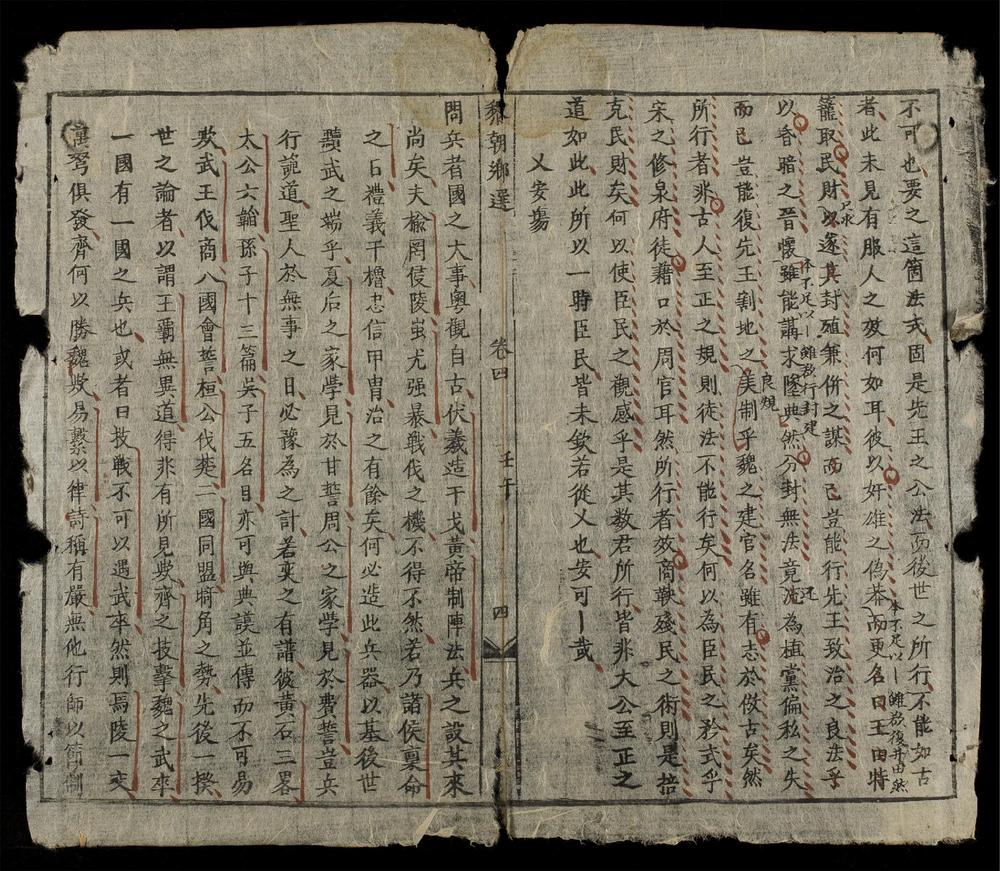 不可也要之這箇法式固是先王之公法而後世之所行不能如古
者此未見有服人之效何如耳彼以奸雄之偽莽而更名曰王田特
籠取民財以遂其封殖兼併之謀而已豈能行先王致治之良法乎
以昏暗之晉懷雖能講求隆典然分封無法竟流為植黨偏私之失
而已豈能復先王割地之美制乎魏之建官名雖有志於倣古矣然
所行者非古人至正之規則徒法不能行矣何以為臣民之矜式乎
宋之修泉府徒藉口於周官耳然所行者效商鞅殘民之術則是掊
克民財矣何以使臣民之觀感乎是其数君所行皆非大公至正之
道如此此所以一時臣民皆未欽若從乂也安可哉
乂安場
黎朝鄉選
卷四
壬午
四
問兵者國之大事粵觀自古伏羲造干戈黃帝制陣法兵之設其來
尚矣夫榆罔侵陵蚩尤强暴戰伐之機不得不然若乃諸侯稟命
之日禮義干櫓忠信甲冑治之有餘矣何必造此兵器以基後世
黷武之端乎夏后之家學見於甘誓周公之家學見於費誓豈兵
行詭道聖人於無事之日必豫為之計若奕之有譜彼黃石三畧
太公六韜孫子十三篇吳子五名目亦可與典謨並傳而不可易
欤武王伐商八國會誓桓公伐楚二國同盟將角之勢先後一揆
世之論者以謂王霸無異道得非有所見欤齊之技擊魏之武卒
一國有一國之兵也或者曰技戰不可以遇武卒然則焉陵一交
萬弩俱發齊何以勝魏欤易繫以律詩稱有嚴無他行師以節制